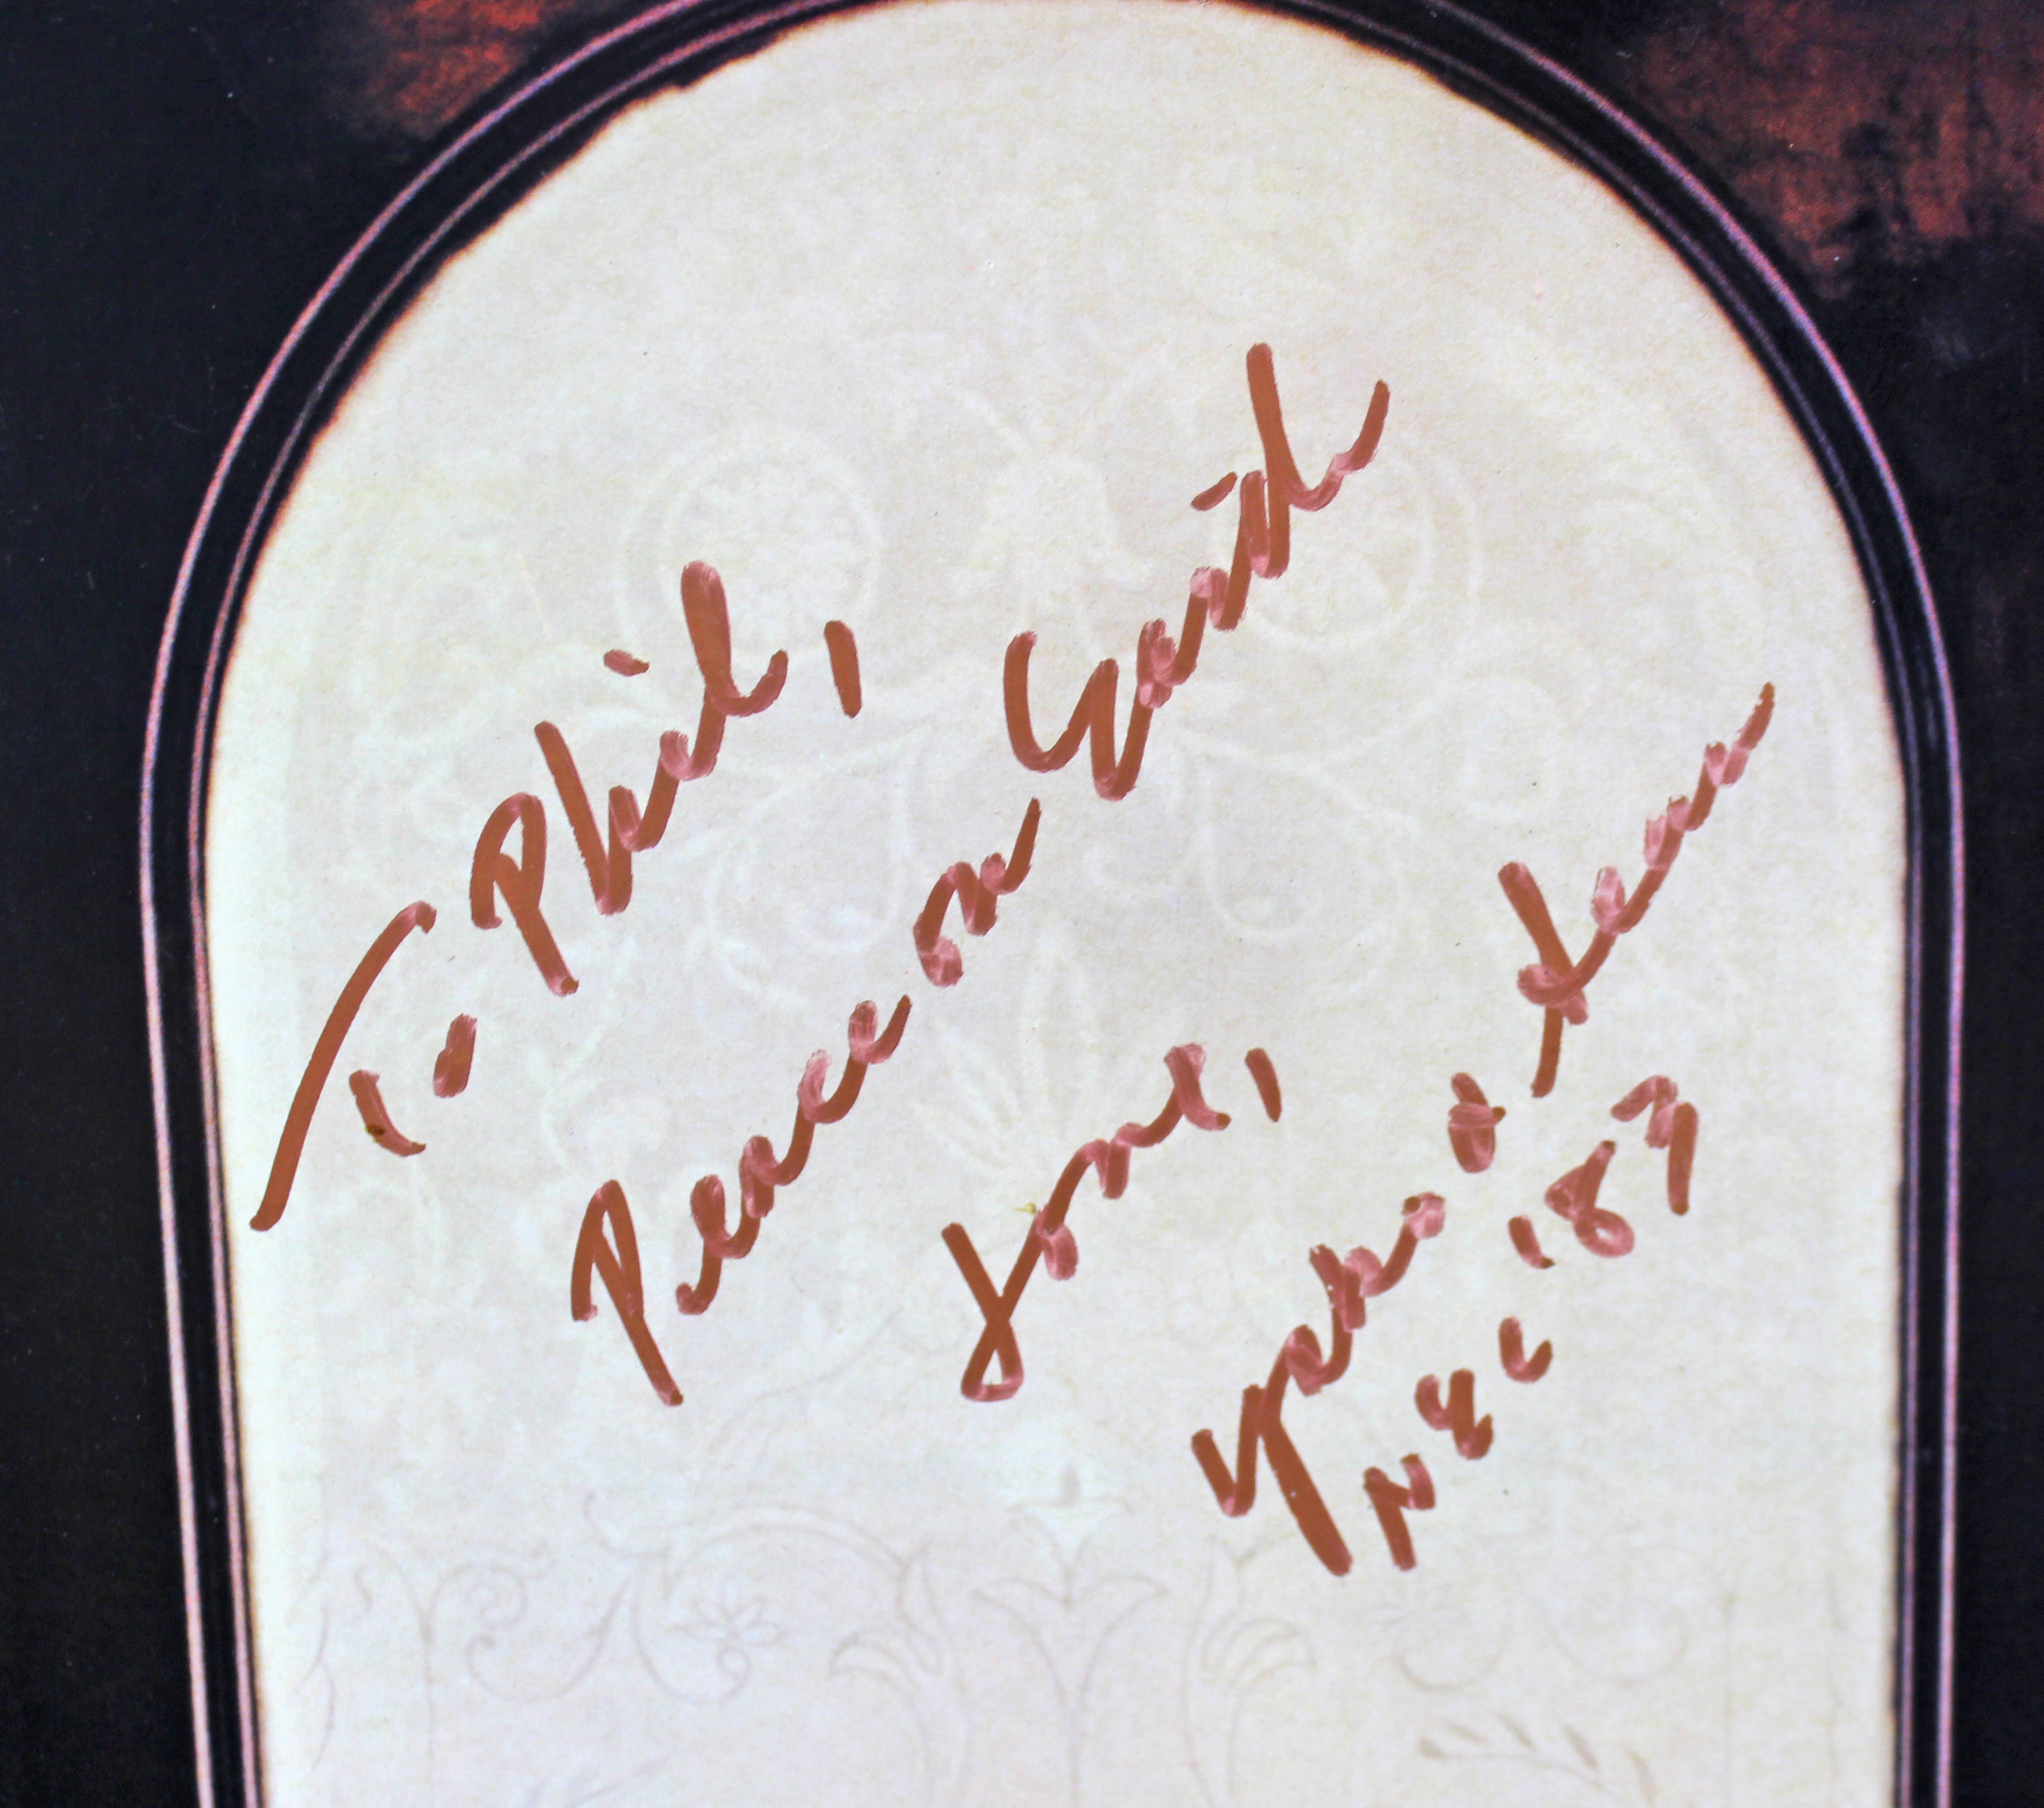 To Phil,
Peace on Earth
love,
Yoko & Sean
NYC '83